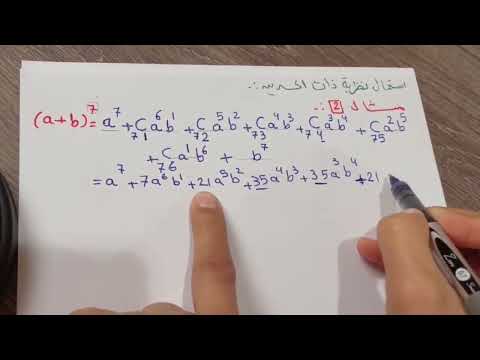 استعمال نظرية ذات الحدين :.
مثال 2 :.
(a+b)⁷ = a⁷ + C₇₁a⁶b¹ + C₇₂a⁵b² + C₇₃a⁴b³ + C₇₄a³b⁴ + C₇₅a²b⁵
+ C₇₆a¹b⁶ + b⁷
= a⁷ + 7a⁶b¹ + 21a⁵b² + 35a⁴b³ + 35a³b⁴ + 21